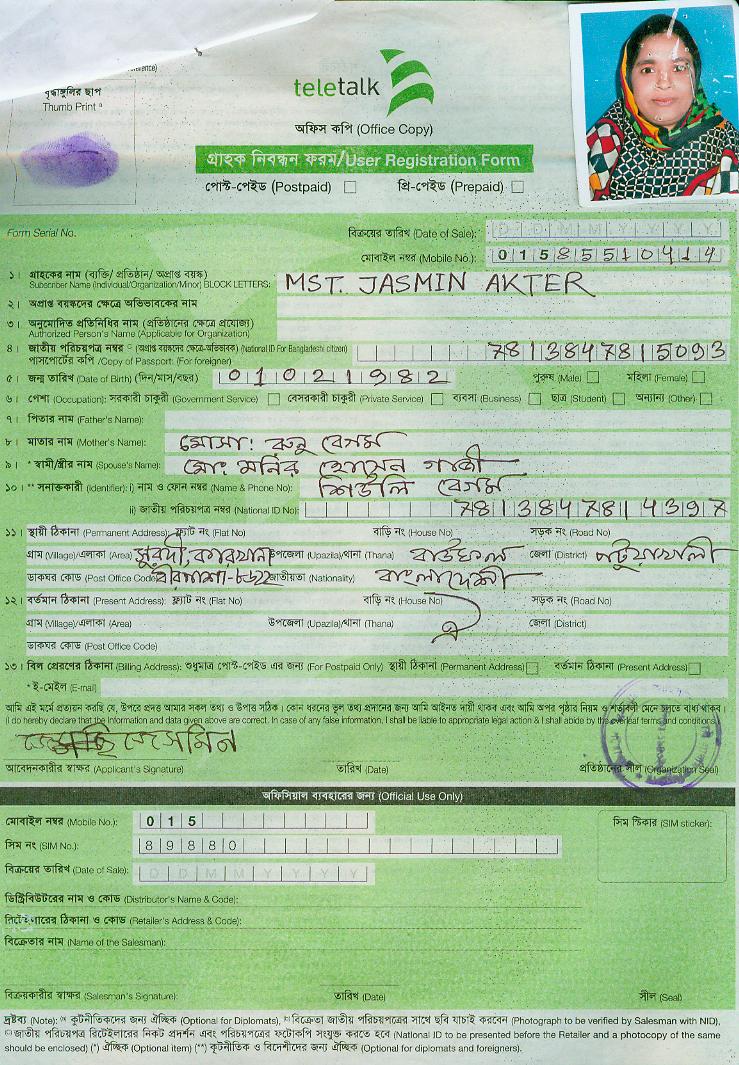 erence)
বৃদ্ধাঙ্গুলির ছাপ
Thumb Print
teletalk
অফিস কপি (Office Copy)
গ্রাহক নিবন্ধন ফরম/User Registration Form
পোস্ট-পেইড (Postpaid) প্রি-পেইড (Prepaid)
Form Serial No.
বিক্রয়ের তারিখ (Date of Sale): D D M M Y Y Y Y
মোবাইল নম্বর (Mobile No.): 01585510414
১। গ্রাহকের নাম (ব্যক্তি/ প্রতিষ্ঠান/ অপ্রাপ্ত বয়স্ক)
Subscriber Name (Individual/Organization/Minor) BLOCK LETTERS: MST. JASMIN AKTER
২। অপ্রাপ্ত বয়স্কদের ক্ষেত্রে অভিভাবকের নাম
৩। অনুমোদিত প্রতিনিধির নাম (প্রতিষ্ঠানের ক্ষেত্রে প্রযোজ্য)
Authorized Person's Name (Applicable for Organization)
৪। জাতীয় পরিচয়পত্র নম্বর (অপ্রাপ্ত বয়স্কদের ক্ষেত্রে-অভিভাবক) (National ID For Bangladeshi citizen) 7813847815093
পাসপোর্টের কপি /Copy of Passport: (For foreigner)
৫। জন্ম তারিখ (Date of Birth) (দিন/মাস/বছর) 01021982 পুরুষ (Male) মহিলা (Female)
৬। পেশা (Occupation): সরকারী চাকুরী (Government Service) বেসরকারী চাকুরী (Private Service) ব্যবসা (Business) ছাত্র (Student) অন্যান্য (Other)
৭। পিতার নাম (Father's Name):
৮। মাতার নাম (Mother's Name): মোসা: রুনু বেগম
৯। * স্বামী/স্ত্রীর নাম (Spouse's Name): মোঃ মনির হোসেন গাজী
১০। ** সনাক্তকারী (Identifier): i) নাম ও ফোন নম্বর (Name & Phone No): শিউলি বেগম
ii) জাতীয় পরিচয়পত্র নম্বর (National ID No): 7813847814397
১১। স্থায়ী ঠিকানা (Permanent Address): ফ্ল্যাট নং (Flat No) বাড়ি নং (House No) সড়ক নং (Road No)
গ্রাম (Village)/এলাকা (Area) সুবর্দী, উপজেলা (Upazila)/থানা (Thana) বাউফল জেলা (District) পটুয়াখালী
ডাকঘর কোড (Post Office Code) জাতীয়তা (Nationality) বাংলাদেশী
১২। বর্তমান ঠিকানা (Present Address): ফ্ল্যাট নং (Flat No) বাড়ি নং (House No) সড়ক নং (Road No)
গ্রাম (Village)/এলাকা (Area) উপজেলা (Upazila)/থানা (Thana) ঐ জেলা (District)
ডাকঘর কোড (Post Office Code)
১৩। বিল প্রেরণের ঠিকানা (Billing Address): শুধুমাত্র পোস্ট-পেইড এর জন্য (For Postpaid Only) স্থায়ী ঠিকানা (Permanent Address) বর্তমান ঠিকানা (Present Address)
* ই-মেইল (E-mail)
আমি এই মর্মে প্রত্যয়ন করছি যে, উপরে প্রদত্ত আমার সকল তথ্য ও উপাত্ত সঠিক। কোন ধরনের ভুল তথ্য প্রদানের জন্য আমি আইনত দায়ী থাকব এবং আমি অপর পৃষ্ঠার নিয়ম ও শর্তাবলী মেনে চলতে বাধ্য থাকব।
(I do hereby declare that the information and data given above are correct. In case of any false information, I shall be liable to appropriate legal action & I shall abide by the overleaf terms and conditions)
জেসমিন
আবেদনকারীর স্বাক্ষর (Applicant's Signature) তারিখ (Date) প্রতিষ্ঠানের সীল (Organization Seal)
অফিসিয়াল ব্যবহারের জন্য (Official Use Only)
মোবাইল নম্বর (Mobile No.): 015 সিম স্টিকার (SIM sticker):
সিম নং (SIM No.): 89880
বিক্রয়ের তারিখ (Date of Sale): D D M M Y Y Y Y
ডিস্ট্রিবিউটরের নাম ও কোড (Distributor's Name & Code):
রিটেইলারের ঠিকানা ও কোড (Retailer's Address & Code):
বিক্রেতার নাম (Name of the Salesman):
বিক্রয়কারীর স্বাক্ষর (Salesman's Signature) তারিখ (Date) সীল (Seal)
দ্রষ্টব্য (Note): কূটনীতিকদের জন্য ঐচ্ছিক (Optional for Diplomats), বিক্রেতা জাতীয় পরিচয়পত্রের সাথে ছবি যাচাই করবেন (Photograph to be verified by Salesman with NID),
জাতীয় পরিচয়পত্র রিটেইলারের নিকট প্রদর্শন এবং পরিচয়পত্রের ফটোকপি সংযুক্ত করতে হবে (National ID to be presented before the Retailer and a photocopy of the same
should be enclosed) (*) ঐচ্ছিক (Optional item) (**) কূটনীতিক ও বিদেশীদের জন্য ঐচ্ছিক (Optional for diplomats and foreigners).